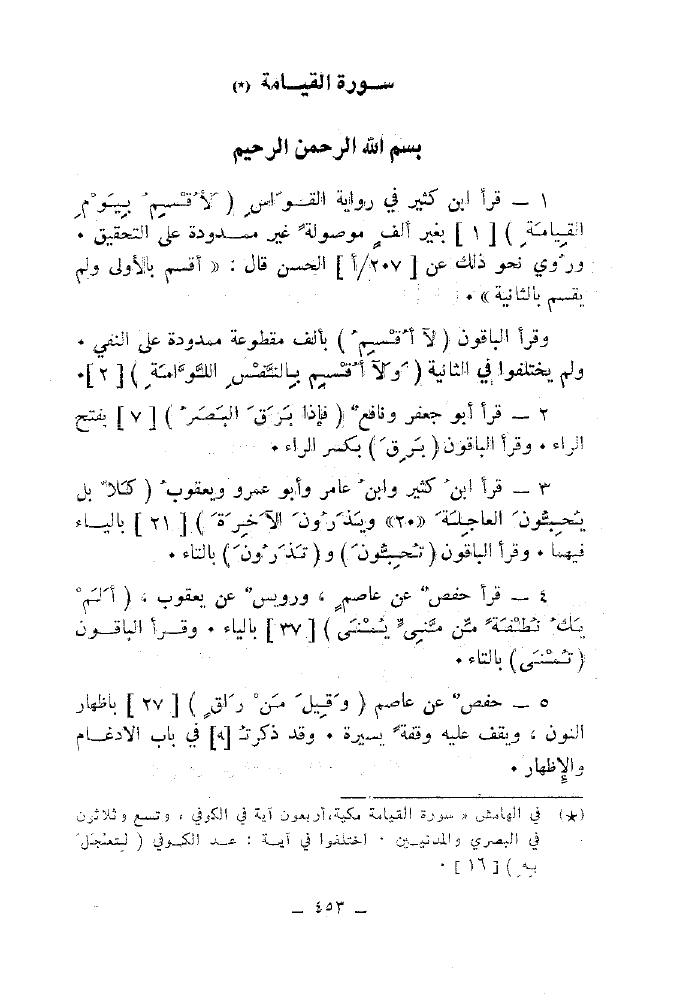 سورة القيامة (*)
بسم الله الرحمن الرحيم
١ – قرأ ابن كثير في رواية القوّاسِ ( لَأُقْسِمُ بِيَوْمِ
القِيامَةِ ) [ ١ ] بغير ألفٍ موصولةً غير ممدودة على التحقيق ٠
ورُوي نحو ذلك عن [ ٢٠٧/أ ] الحسن قال : « أقسم بالأولى ولم
يقسم بالثانية » ٠
وقرأ الباقون ( لآ أُقْسِمُ ) بألف مقطوعة ممدودة على النفي ٠
ولم يختلفوا في الثانية ( وَلآ أُقْسِم بِالنَّفْسِ اللَّوَّامَةِ ) [ ٢ ]٠
٢ – قرأ أبو جعفر ونافعٌ ( فإذا بَرَقَ البَصَرُ ) [ ٧ ] بفتح
الراء ٠ وقرأ الباقون ( بَرِقَ ) بكسر الراء ٠
٣ – قرأ ابنُ كثير وابنُ عامر وأبو عمرو ويعقوبُ ( كَلاَّ بل
يُحِبُّونَ العاجِلَةَ «٢٠» ويَذَرُونَ الآخِرَةَ ) [ ٢١ ] بالياء
فيهما ٠ وقرأ الباقون ( تُحِبُّونَ ) و ( تَذَرُونَ ) بالتاء ٠
٤ – قرأ حفصٌ عن عاصمٍ ، ورويس عن يعقوب ، ( أَلَمْ
يَكُ نُطْفَةً مّن مَّنِيٍّ يُمْنَى ) [ ٣٧ ] بالياء ٠ وقرأ الباقون
( تُمْنَى ) بالتاء ٠
٥ – حفصٌ عن عاصم ( وَقِيلَ مَنْ رَاقٍ ) [ ٢٧ ] باظهار
النون ، ويقف عليه وقفةً يسيرة ٠ وقد ذكرتـ [ـه] في باب الادغام
والإظهار ٠
(*) في الهامش « سورة القيامة مكية، أربعون آية في الكوفي ، وتسع وثلاثون
في البصري والمدنيين ٠ اختلفوا في آية : عد الكوفي ( لِتَعْجَلَ
بِهِ ) [ ١٦ ] ٠
– ٤٥٣ –